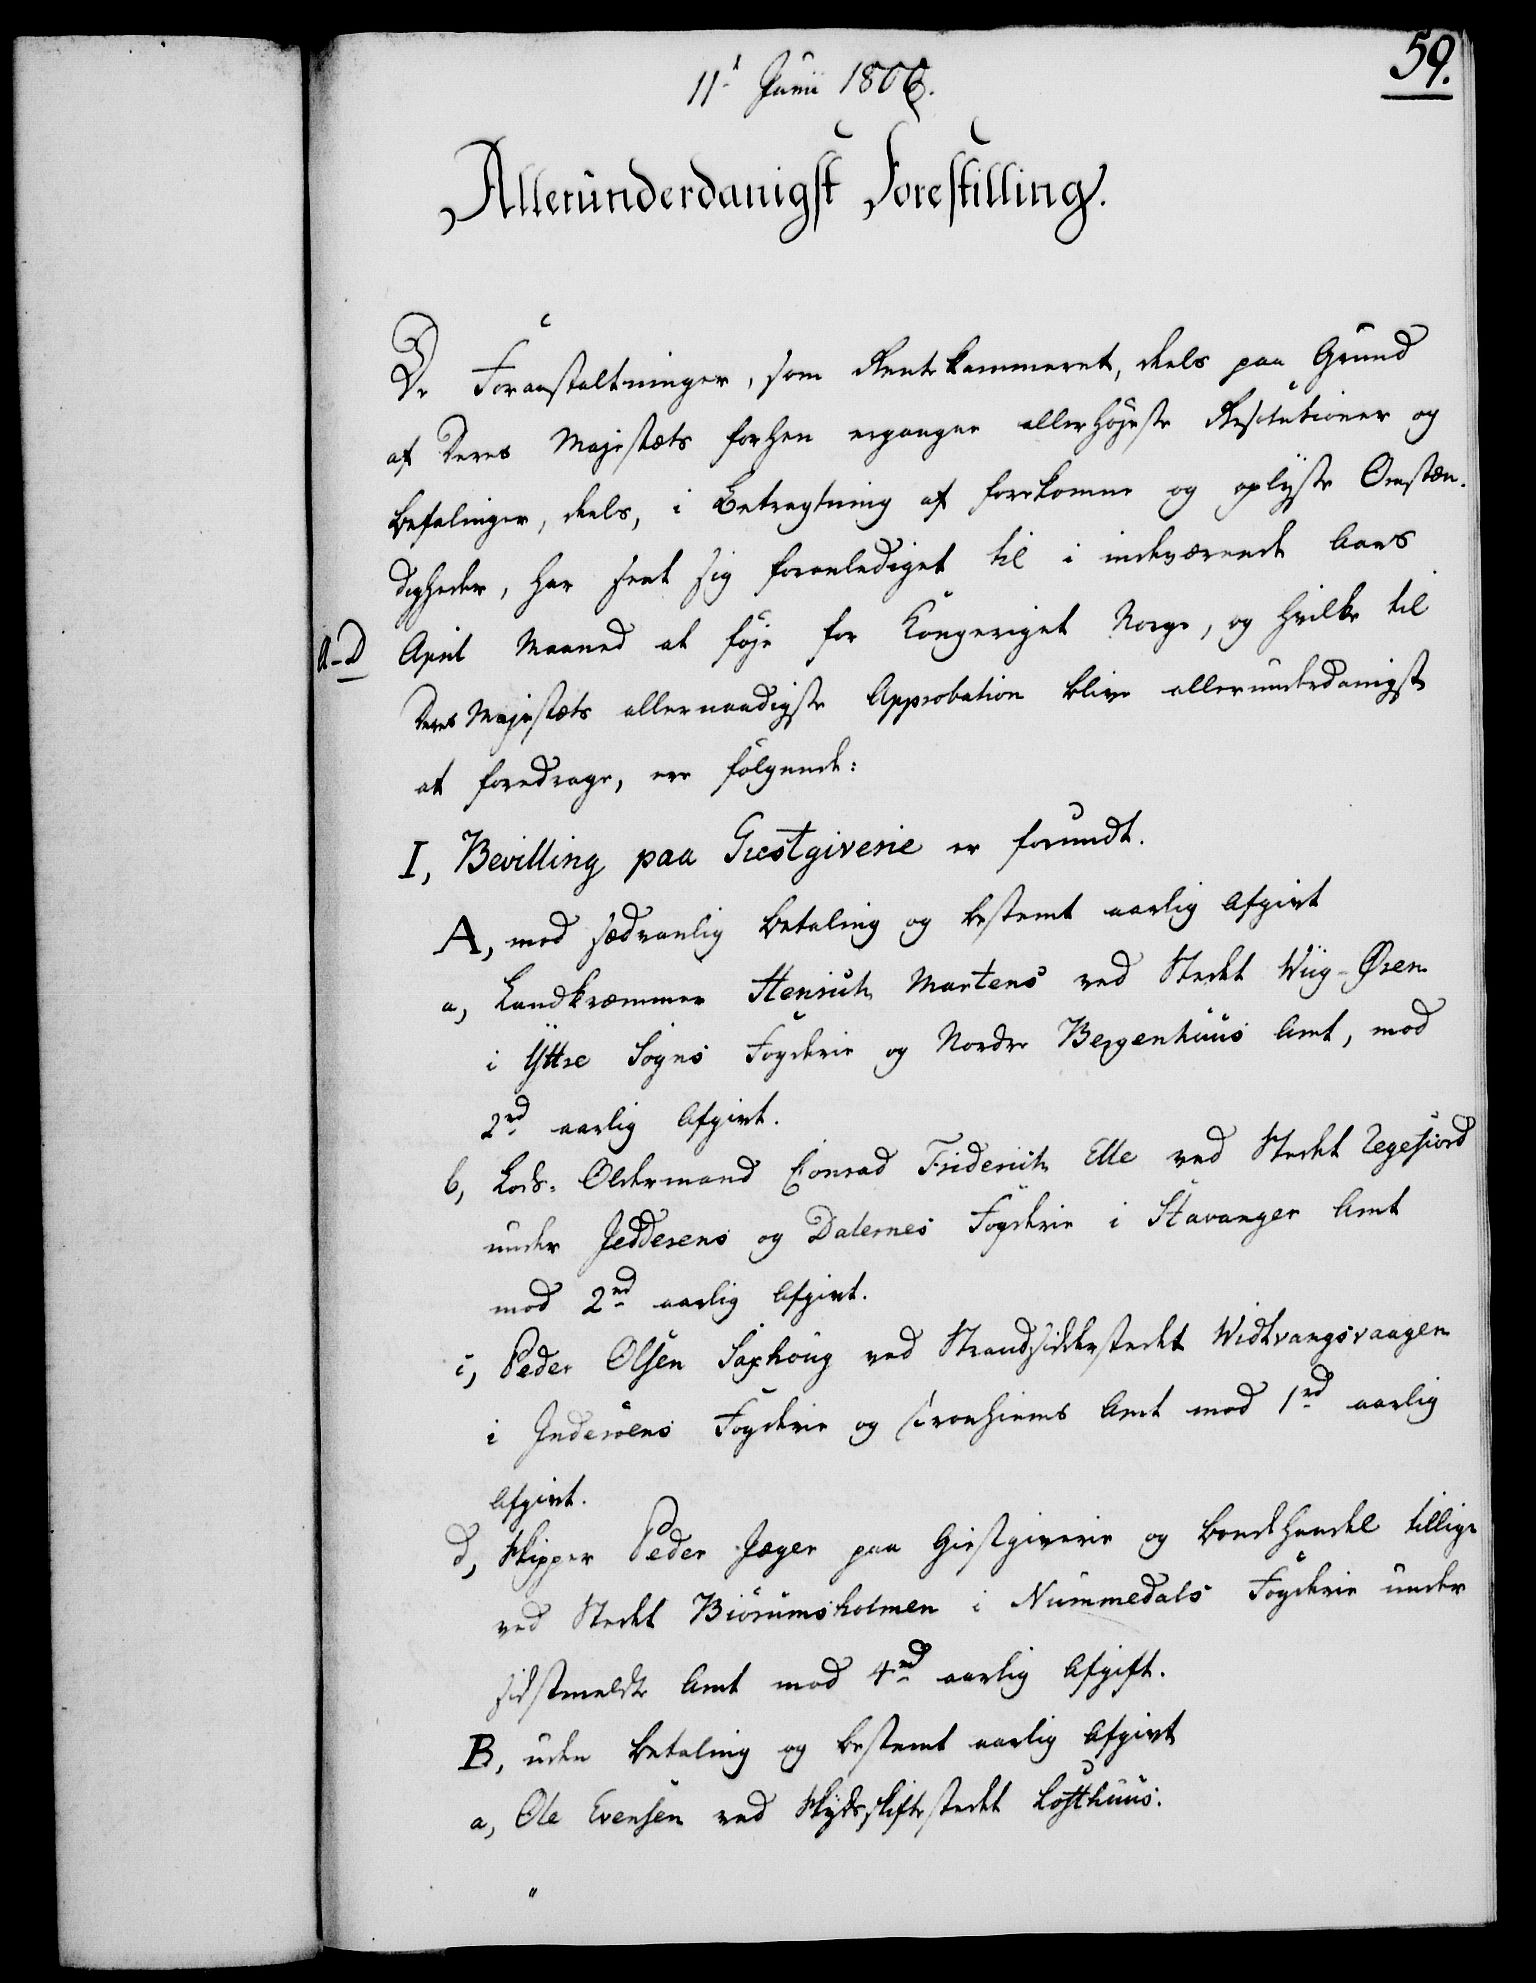 59.
11<sup>t</sup> Junii 1806.
Allerunderdanigst Forestilling.
De Foranstaltninger, som Rentekammeret, deels paa Grund
af Deres Majestæts forhen ergangne allerhøjeste Resolutioner og
Befalinger, deels, i Betragtning af forekomne og oplyste Omstæn-
digheder, har seet sig foranlediget til i indeværende Aars
A-D April Maaned at føje for Kongeriget Norge, og hvilke til
Deres Majestæts allernaadigste Approbation blive allerunderdanigst
at foredrage, ere følgende:
I, Bevilling paa Giestgiverie er forundt.
A, mod sædvanlig Betaling og bestemt aarlig Afgivt
a, Landkræmmer Henrich Martens ved Stedet Wiig-Øren
i Yttre Sogns Fogderie og Nordre Bergenhuus Amt, mod
2 rd aarlig Afgivt.
b, Lods-Oldermand Conrad Friderich Elle ved Stedet Regefiord
under Jedderens og Dalernes Fogderie i Stavanger Amt
mod 2 rd aarlig Afgivt.
c, Peder Olsen Saxhoug ved Strandsidderstedet Widtvangsvaagen
i Inderøens Fogderie og Tronhiems Amt mod 1 rd aarlig
Afgivt.
d, Skipper Peder Jæger paa Giestgiverie og Bondehandel tillige
ved Stedet Biörumsholmen i Nummedals Fogderie under
sidstmeldte Amt mod 4 rd aarlig Afgift.
B, uden Betaling og bestemt aarlig Afgivt
a, Ole Evensen ved Skydsskiftestedet Losthuus.
"